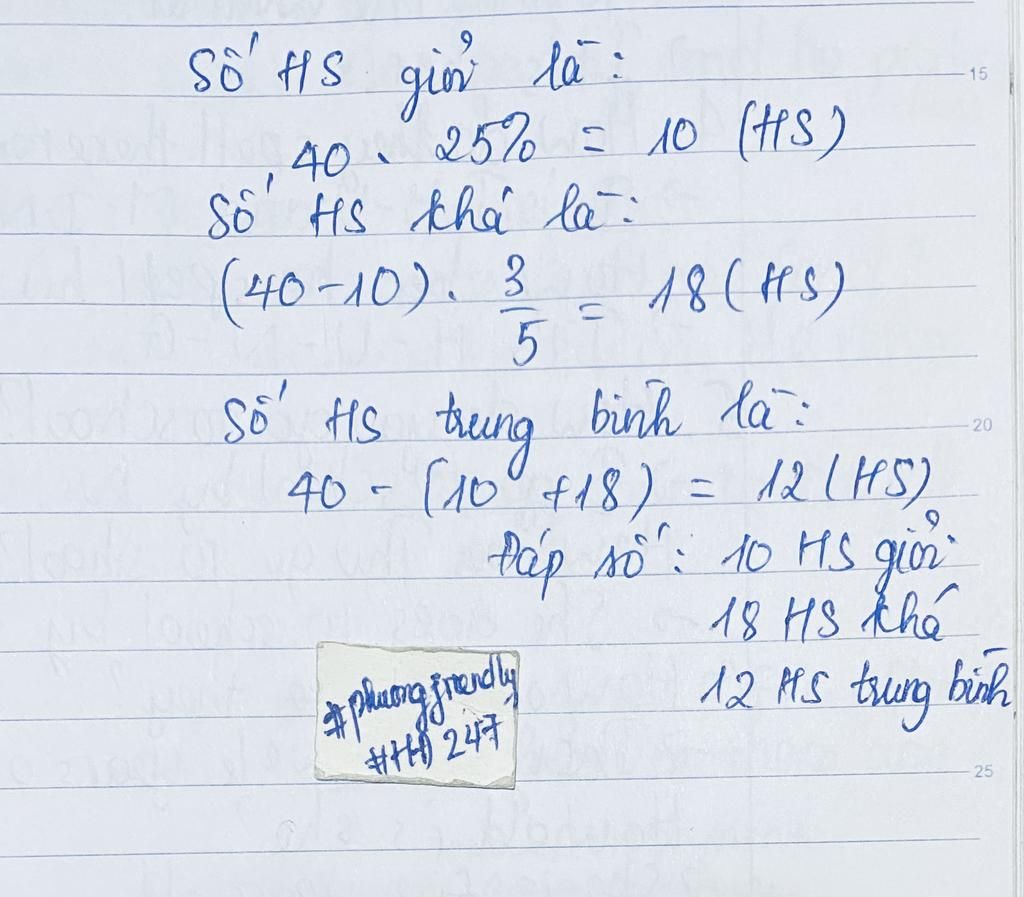 Số HS giỏi là:
40 . 25% = 10 (HS)
Số HS khá là:
(40-10) . 3/5 = 18 (HS)
Số HS trung bình là:
40 - (10 + 18) = 12 (HS)
Đáp số: 10 HS giỏi
18 HS khá
12 HS trung bình
#phuongfriendly
#HĐ 247
15
20
25